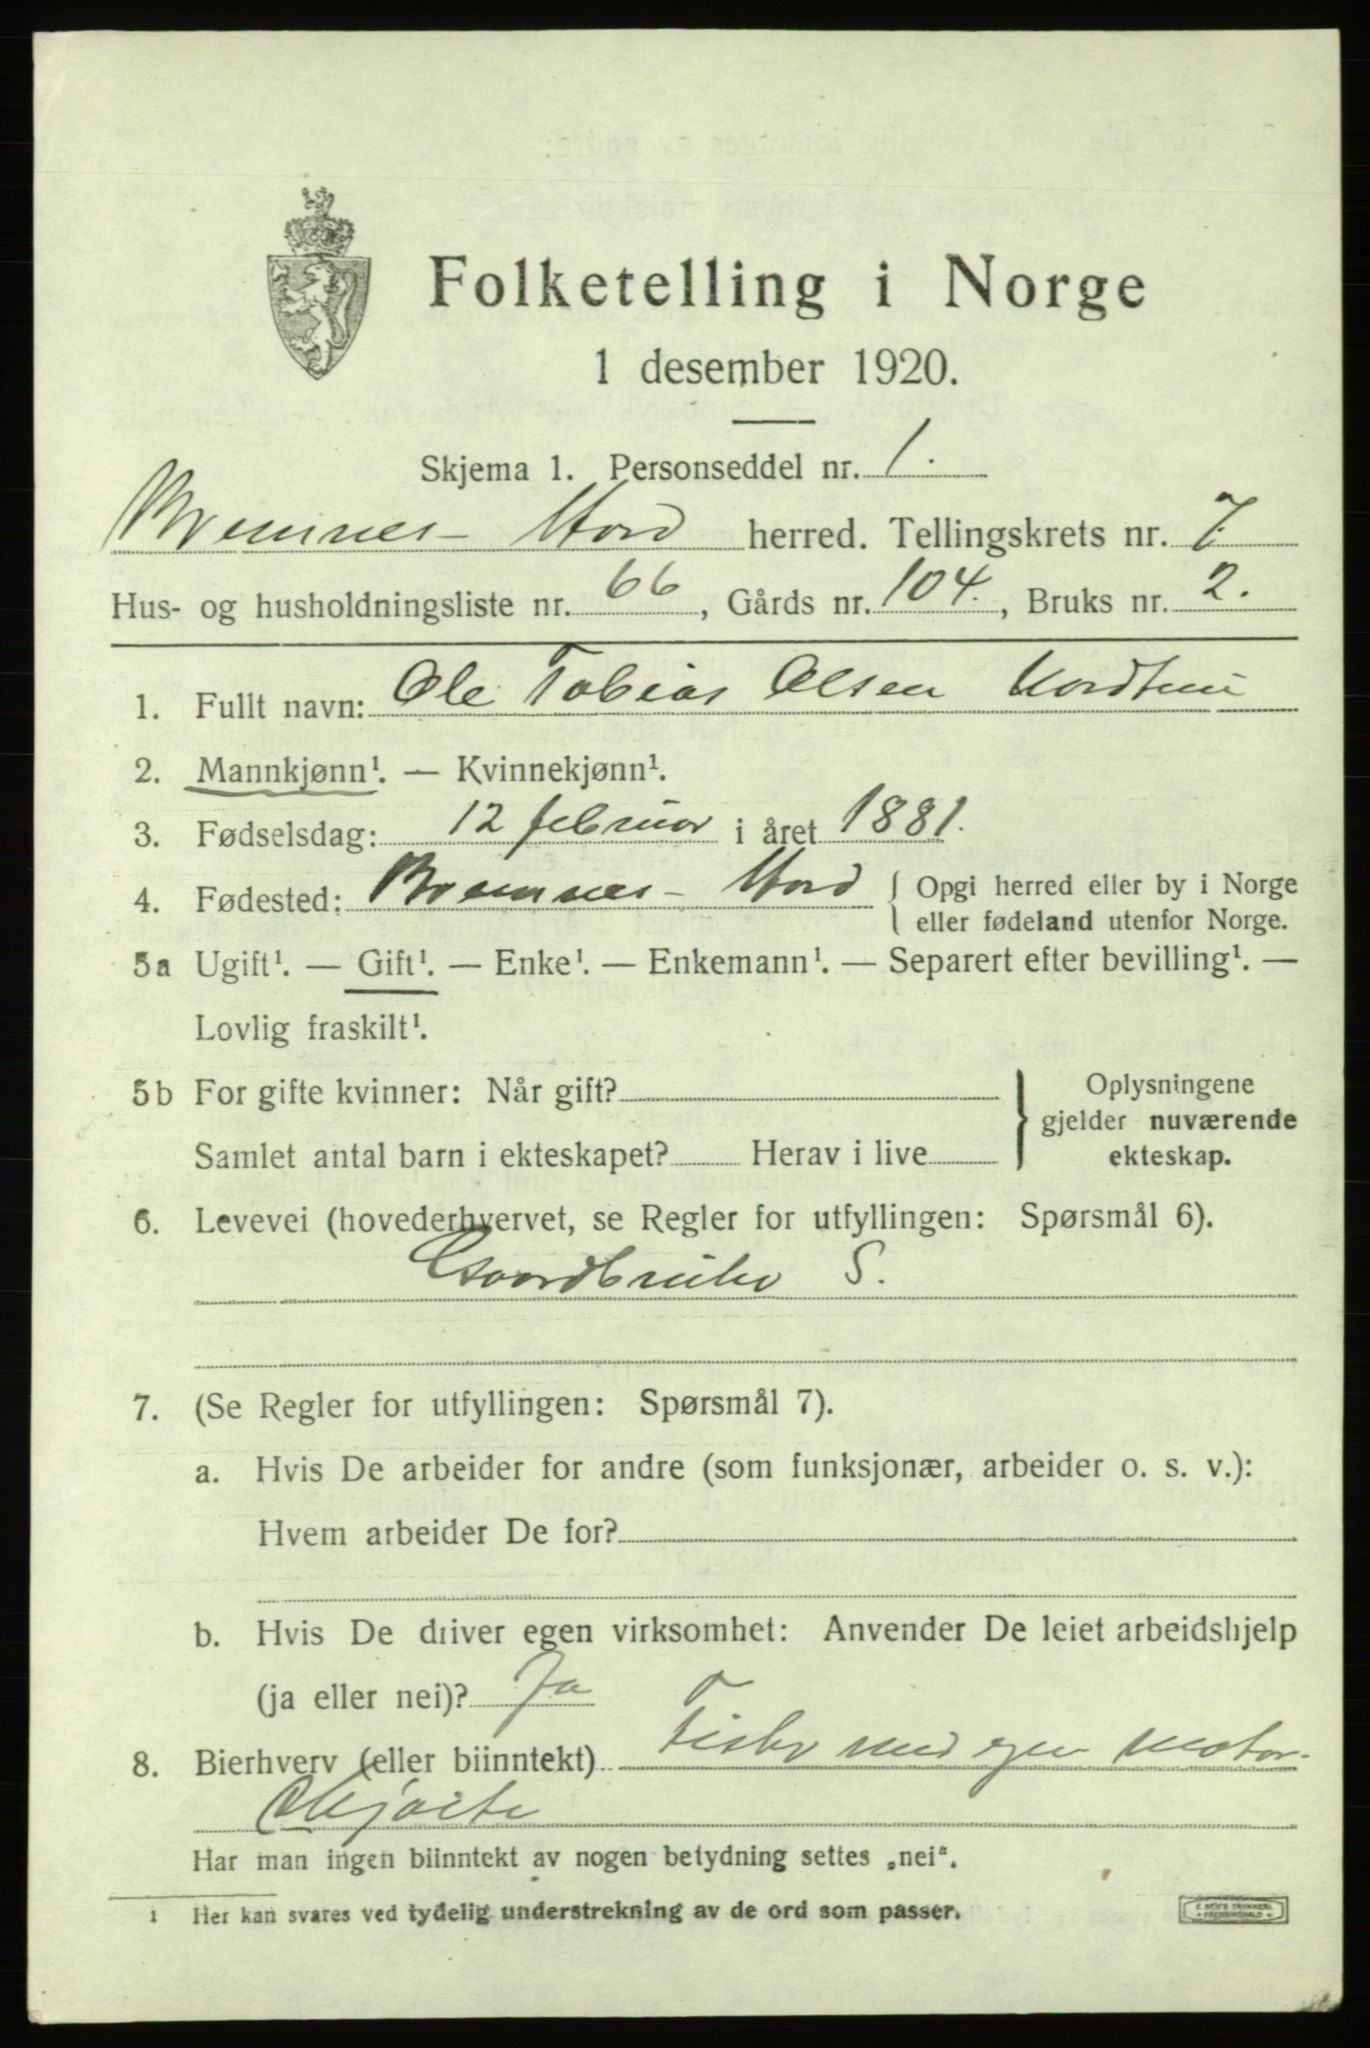 Folketelling i Norge
1 desember 1920.
Skjema 1. Personseddel nr. 1.
Bremnes - Stord herred. Tellingskrets nr. 7.
Hus- og husholdningsliste nr. 66, Gårds nr. 104., Bruks nr. 2.
1. Fullt navn: Ole Tobias Olsen
2. Mannkjønn¹. — Kvinnekjønn¹.
3. Fødselsdag: 12 februar i året 1881.
4. Fødested: Bremnes - Stord { Opgi herred eller by i Norge
eller fødeland utenfor Norge.
5a Ugift¹. — Gift¹. — Enke¹. — Enkemann¹. — Separert efter bevilling¹. —
Lovlig fraskilt¹.
5b For gifte kvinner: Når gift?
Samlet antal barn i ekteskapet? Herav i live
} Oplysningene
gjelder nuværende
ekteskap.
6. Levevei (hovederhvervet, se Regler for utfyllingen: Spørsmål 6).
Gaardbruker S.
7. (Se Regler for utfyllingen: Spørsmål 7).
a. Hvis De arbeider for andre (som funksjonær, arbeider o. s. v.):
Hvem arbeider De for?
b. Hvis De driver egen virksomhet: Anvender De leiet arbeidshjelp
(ja eller nei)? Ja
8. Bierhverv (eller biinntekt) Fisker med egen motor-
skjøite
Har man ingen biinntekt av nogen betydning settes „nei“.
1 Her kan svares ved tydelig understrekning av de ord som passer.